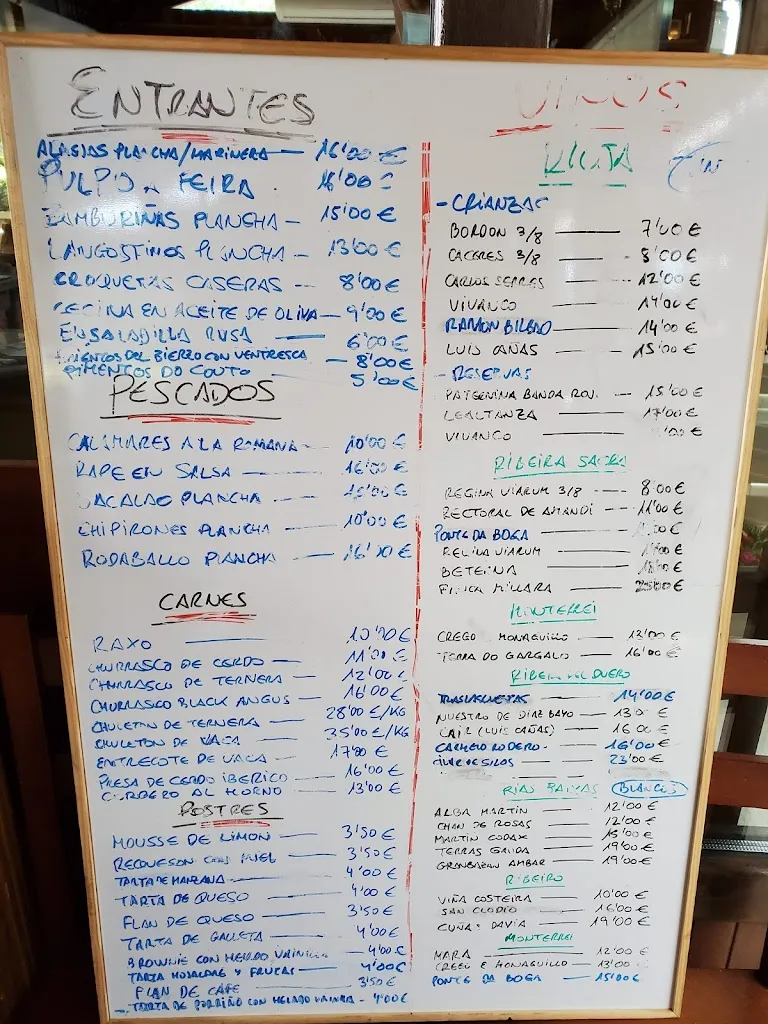 ENTRANTES
PLANCHA/MARINERA 16'00 €
PULPO A FEIRA 16'00 €
ZAMBURIÑAS PLANCHA 15'00 €
LANGOSTINOS PLANCHA 13'00 €
CROQUETAS CASERAS 8'00 €
CECINA EN ACEITE DE OLIVA 9'00 €
ENSALADILLA RUSA 6'00 €
PIMIENTOS DEL BIERZO CON VENTRESCA 8'00 €
PIMENTOS DO COUTO 5'00 €
PESCADOS
CALAMARES A LA ROMANA 10'00 €
RAPE EN SALSA 16'00 €
BACALAO PLANCHA €
CHIPIRONES PLANCHA 10'00 €
RODABALLO PLANCHA 16'00 €
CARNES
RAXO 10'00 €
CHURRASCO DE CERDO 11'00 €
CHURRASCO DE TERNERA 12'00 €
CHURRASCO BLACK ANGUS 16'00 €
CHULETON DE TERNERA 28'00 €/KG
CHULETON DE VACA 35'00 €/KG
ENTRECOTE DE VACA 17'00 €
PRESA DE CERDO IBERICO 16'00 €
CORDERO AL HORNO 13'00 €
POSTRES
MOUSSE DE LIMON 3'50 €
REQUESON CON MIEL 3'50 €
TARTA DE MANZANA 4'00 €
TARTA DE QUESO 4'00 €
FLAN DE QUESO 3'50 €
TARTA DE GALLETA 4'00 €
BROWNIE CON HELADO VAINILLA 4'00 €
TARTA HOJALDRE Y FRUTAS 4'00 €
FLAN DE CAFE 3'50 €
TARTA DE PORRIÑO CON HELADO VAINILLA - 4'00 €
VINOS
RIOJA
- CRIANZAS
BORDON 3/8 7'00 €
CACERES 3/8 8'00 €
CARLOS SERRES 12'00 €
VIVANCO 14'00 €
RAMON BILBAO 14'00 €
LUIS CAÑAS 15'00 €
- RESERVAS
PATERNINA BANDA ROJ. 15'00 €
LEALTANZA 17'00 €
VIVANCO €
RIBEIRA SACRA
REGINA VIARUM 3/8 8'00 €
RECTORAL DE AMANDI 11'00 €
PONTE DA BOGA €
REGINA VIARUM €
€
FINCA MILLARA 25'00 €
MONTERREI
CREGO MONAGUILLO 13'00 €
TERRA DO GARGALO 16'00 €
RIBERA DEL DUERO
TRASLASCUESTAS 14'00 €
NUESTRO DE DIAZ BAYO 13'00 €
CAIR (LUIS CAÑAS) 16'00 €
CARMELO RODERO 16'00 €
DE SILOS 23'00 €
RIAS BAIXAS BLANCOS
ALBA MARTIN 12'00 €
CHAN DE ROSAS 12'00 €
MARTIN CODAX 15'00 €
TERRAS GAUDA 19'00 €
GRANBAZAN AMBAR 19'00 €
RIBEIRO
VIÑA COSTEIRA 10'00 €
SAN CLODIO 16'00 €
CUÑAS DAVIA 19'00 €
MONTERREI
MARA 12'00 €
CREGO E MONAGUILLO 13'00 €
PONTE DA BOGA 15'00 €